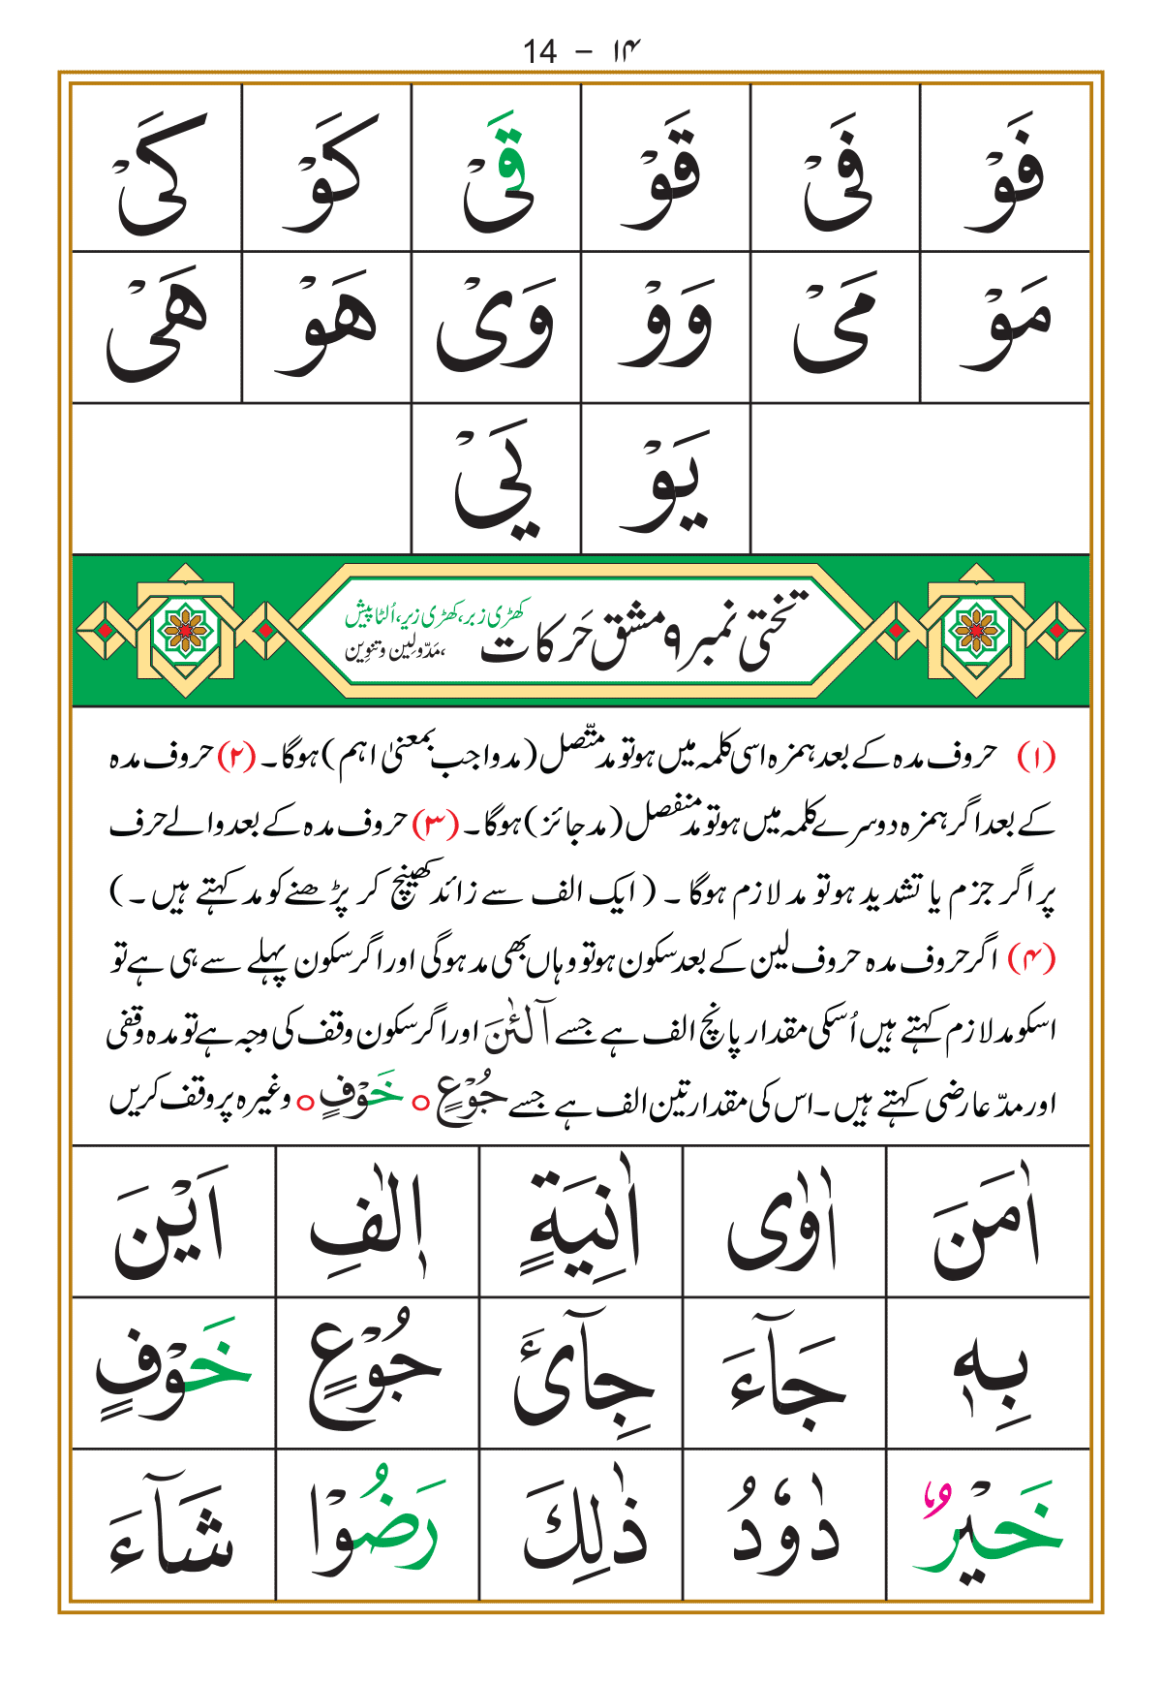 14 - ۱۴
فَوْ فَیْ قَوْ قَیْ کَوْ کَیْ
مَوْ مَیْ وَوْ وَیْ هَوْ هَیْ
يَوْ يَيْ
تختی نمبر ۹ مشق حَرکات کھڑی زبر، کھڑی زیر، اُلٹا پیش
،مَدّولِین وتنوِین
(۱) حروف مدہ کے بعد ہمزہ اسی کلمہ میں ہو تو مد متّصل (مد واجب بمعنیٰ اہم) ہوگا۔ (۲) حروف مدہ
کے بعد اگر ہمزہ دوسرے کلمہ میں ہو تو مد منفصل (مد جائز) ہوگا۔ (۳) حروف مدہ کے بعد والے حرف
پر اگر جزم یا تشدید ہو تو مد لازم ہوگا ۔ ( ایک الف سے زائد کھینچ کر پڑھنے کو مد کہتے ہیں ۔)
(۴) اگر حروف مدہ حروف لین کے بعد سکون ہو تو وہاں بھی مد ہوگی اور اگر سکون پہلے سے ہی ہے تو
اسکو مد لازم کہتے ہیں اُسکی مقدار پانچ الف ہے جسے آلْـٰٔنَ اور اگر سکون وقف کی وجہ ہے تو مدہ وقفی
اور مدّ عارضی کہتے ہیں ۔ اس کی مقدار تین الف ہے جسے جُوْعٍ ○ خَوْفٍ ○ وغیرہ پر وقف کریں
اٰمَنَ اٰوٰی اٰنِيَةٍ اٖلٰفِ اَيْنَ
بِهٖ جَآءَ جِآیْٔ جُوْعٍ خَوْفٍ
خَيْرٌ دٰوٗدُ ذٰلِكَ رَضُوْا شَآءَ